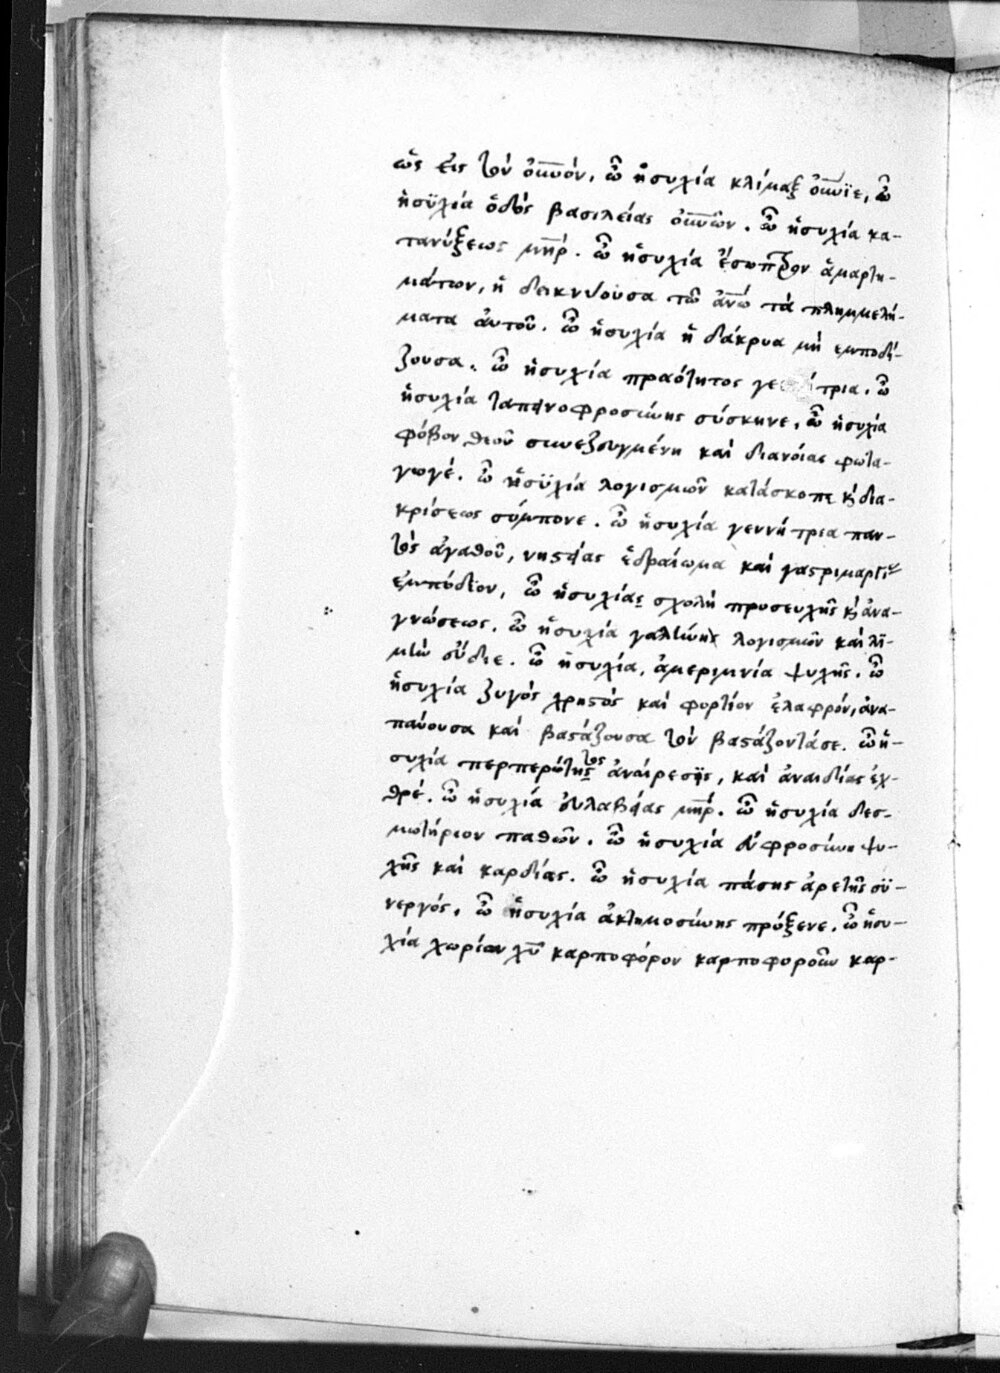 ὡς εἰς τὸν οὐνόν, ὦ ἡσυχία κλίμαξ οὐνϊε, ὦ
ἡσϋχία ὁδὸς βασιλείας οὐνῶν. ὦ ἡσυχία κα-
τανύξεως μηρ. ὦ ἡσυχία ἔσωπτρον ἁμαρτη-
μάτων, ἡ δεικνύουσα τῶ ἀνω τὰ πλημμελή-
ματα αὐτοῦ. ὦ ἡσυχία ἡ δάκρυα μὴ εμποδί-
ζουσα. ὦ ἡσυχία πραότητος ὦ
ἡσυχία ταπεινοφροσύνης σύσκηνε, ὦ ἡσυχία
φόβον θεοῦ συνεζευγμένη καὶ διανοίας φωτα-
γωγέ. ὦ ἡσϋχία λογισμῶν κατάσκοπε κ δια-
κρίσεως σύμπονε. ὦ ἡσυχία γεννήτρια παν-
τὸς ἀγαθοῦ, νηστείας ἑδραίωμα καὶ γαστριμαργίας
ἐμπόδιον, ὦ ἡσυχίας σχολὴ προσευχῆς κ ἀνα-
γνώσεως. ὦ ἡσυχία γαλήνης λογισμῶν καὶ λϊ-
μὴν εὔδιε. ὦ ἡσυχία, ἀμεριμνία ψυχῆς. ὦ
ἡσυχία ζυγὸς χρηστὸς καὶ φορτίον ἐλαφρόν, ἀνα-
παύουσα καὶ βαστάζουσα τὸν βαστάζοντάσε. ὦ ἡ-
συχία περπερότητος ἀναίρεσης, καὶ ἀναιδίας ἐχ-
θρέ. ὦ ἡσυχία εὐλαβείας μηρ. ὦ ἡσυχία δεσ-
μωτήριον παθῶν. ὦ ἡσυχία εὐφροσύνη ψυ-
χῆς καὶ καρδίας. ὦ ἡσυχία πάσης ἀρετῆς σϋ-
νεργός, ὦ ἡσυχία ἀκτημοσύνης πρόξενε. ὦ ἡσυ-
χία χωρίον χυ καρποφόρον καρποφοροῦν καρ-